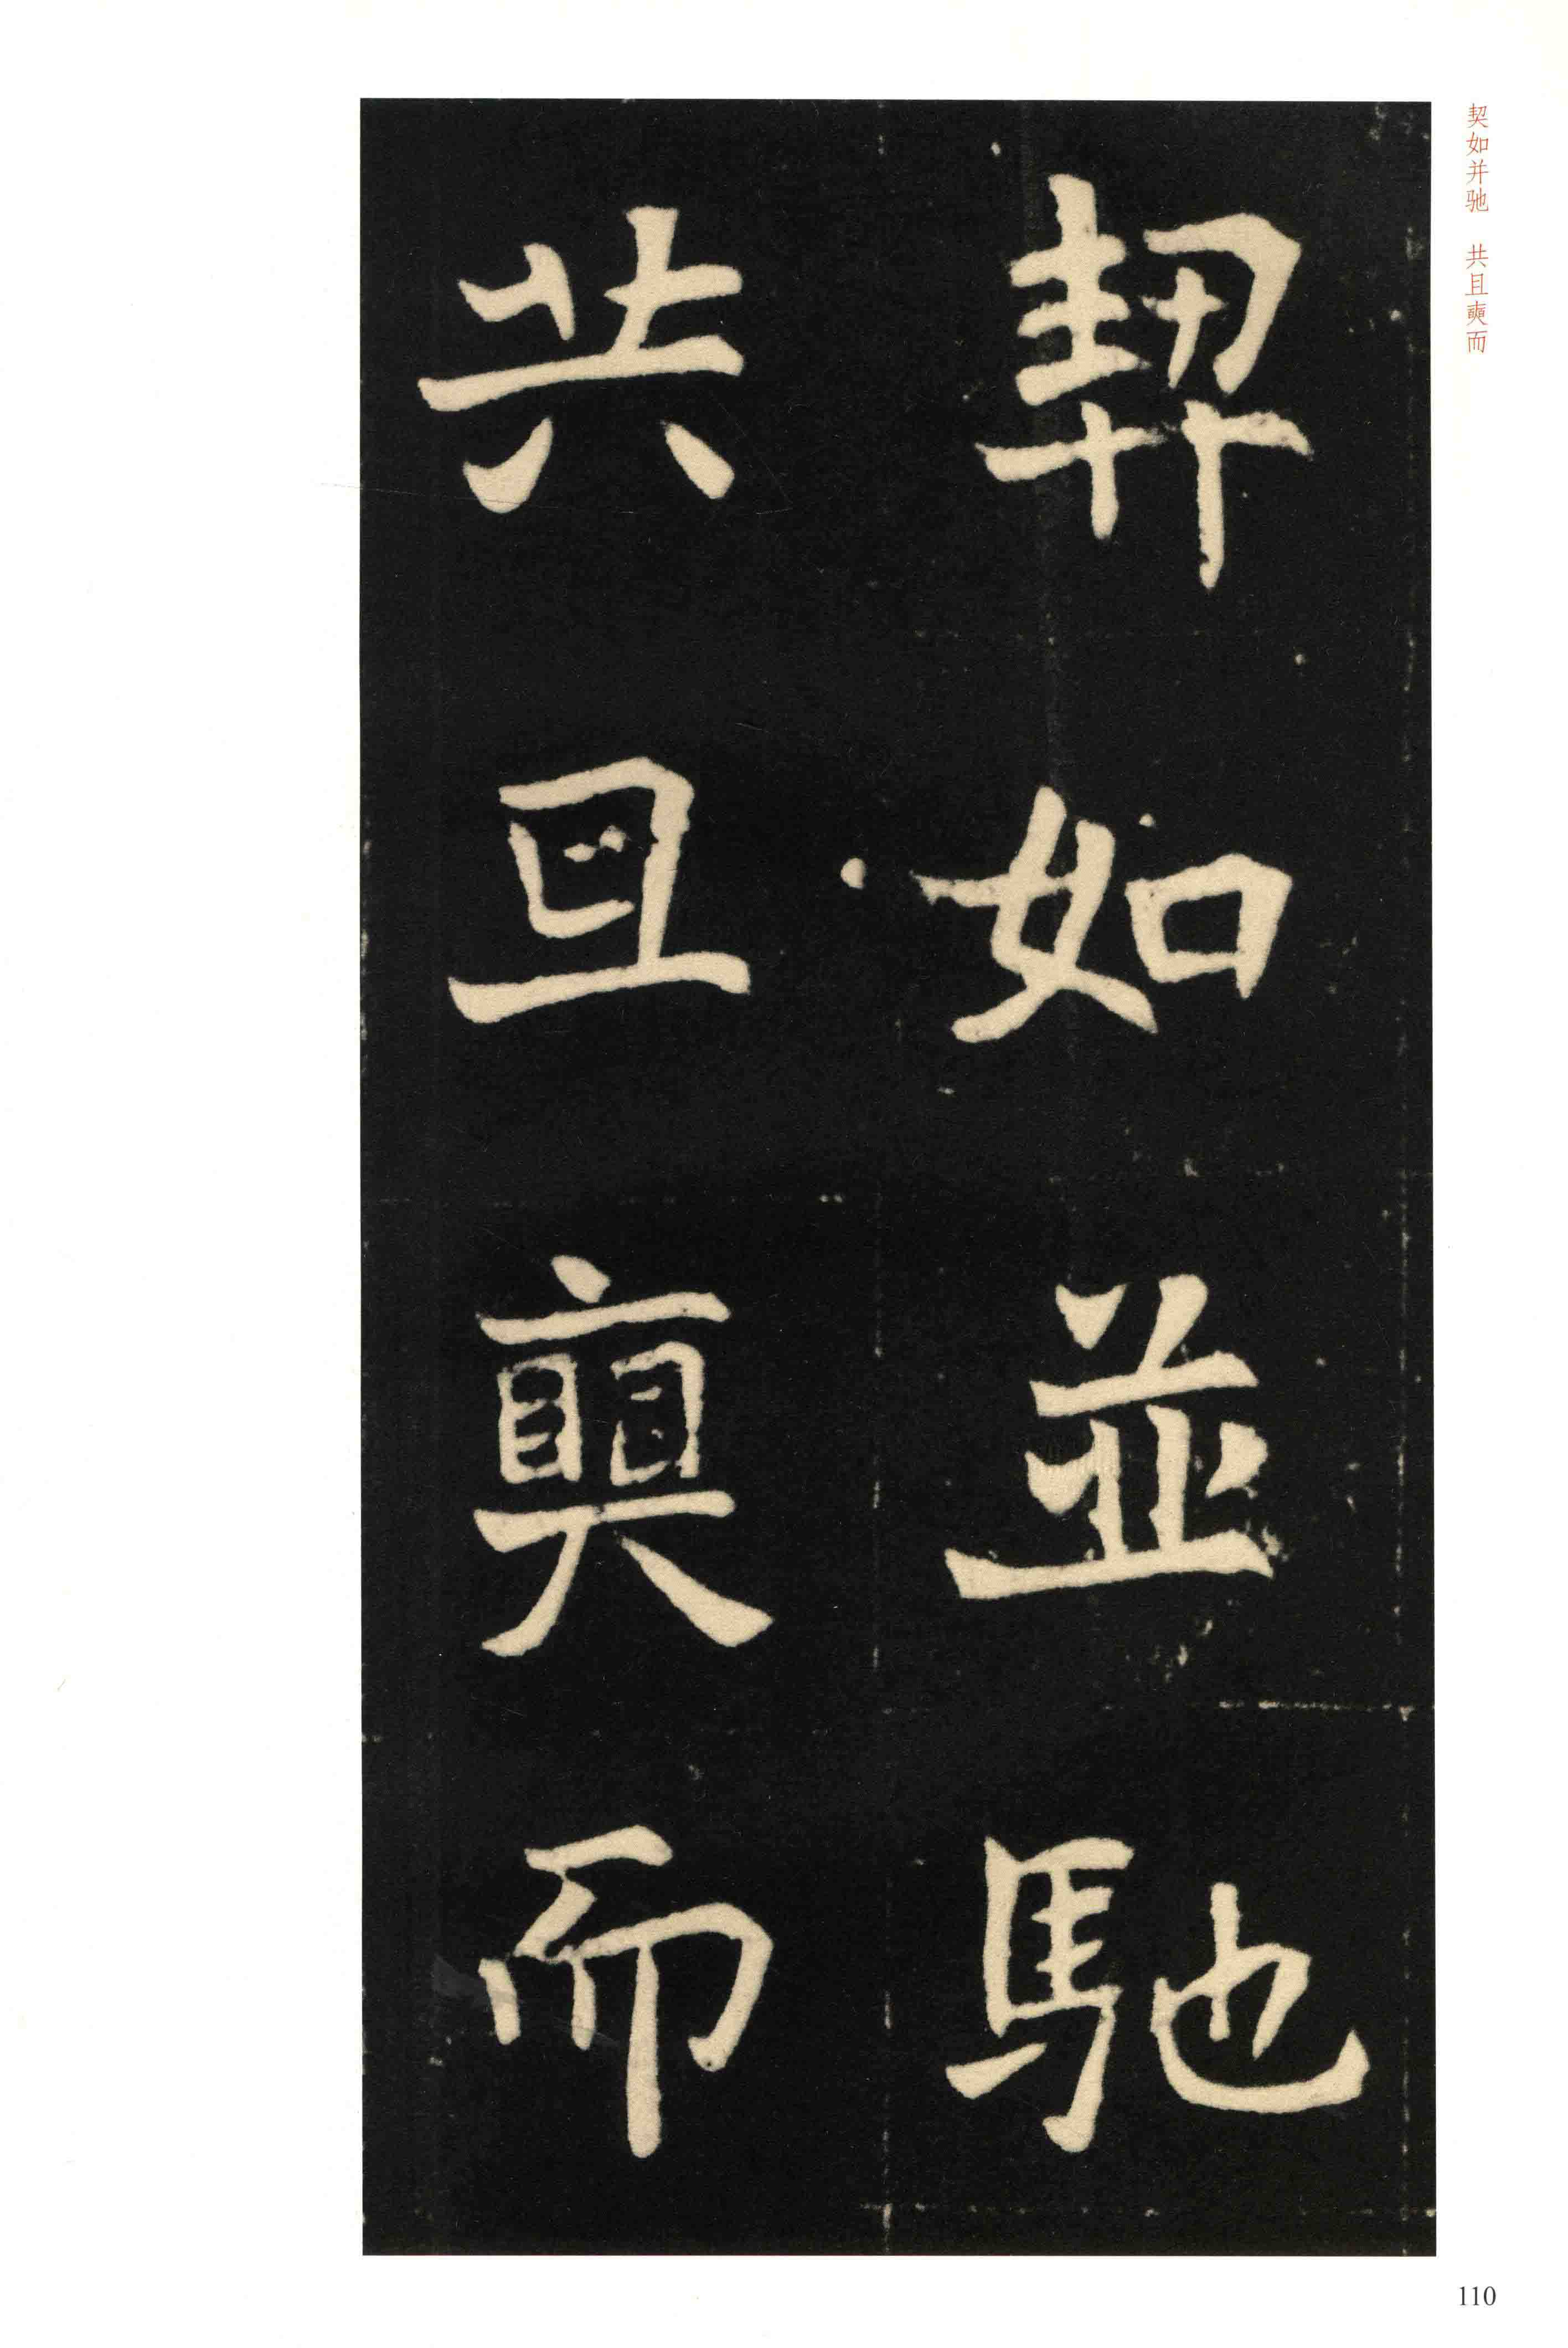 契如并驰　共且奭而
契如並馳
共旦奭而
110